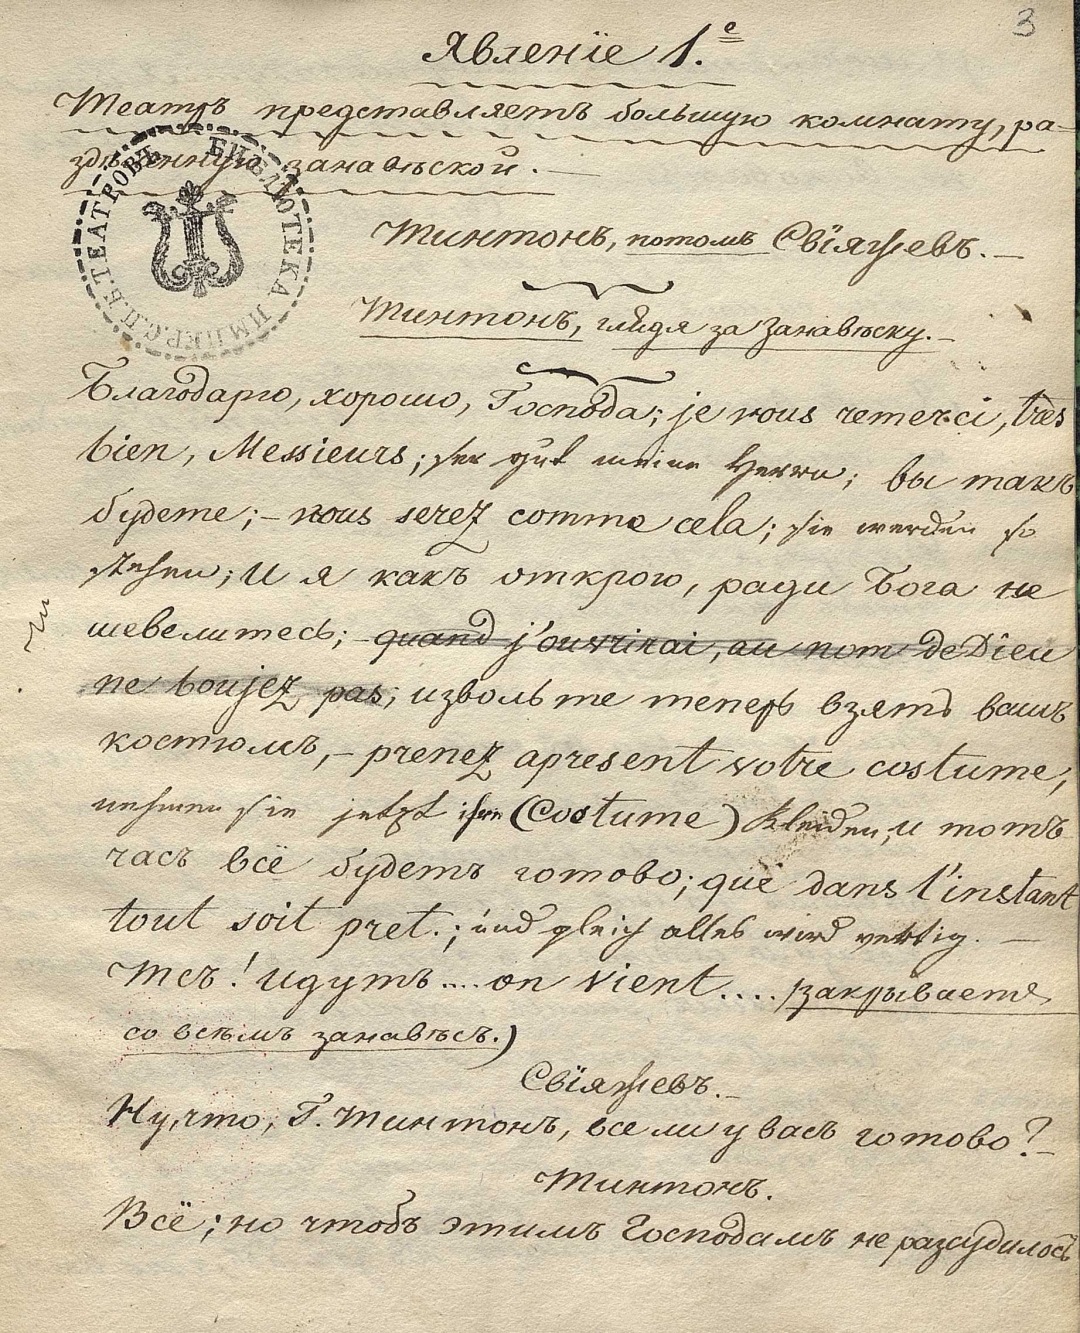 3
Явленіе 1.е
Театръ представляетъ большую комнату, ра-
здѣленную занавѣской. —
Тинтонъ, потомъ Свіяжевъ. —
Тинтонъ, глядя за Занавѣску. —
Благодарю, хорошо, Господа; je vous remerci, tres
bien, Messieurs; ser gut meine Herrn; вы такъ
будете; – vous serez comme cela; sie werden so
stehen; и я какъ открою, ради Бога не
шевелитесь; quand j'ouvrirai, au nom de Dieu
ne boujez pas; извольте теперь взять вашъ
костюмъ, – prenez apresent votre costume,
nehmen sie jetzt ihre (Costume) Kleiden, и тотъ
часъ всё будетъ готово; que dans l'instant
tout soit pret.; und gleich alles wird vertig. —
Тсъ! идутъ.... on vient.... закрываетъ
со всѣмъ занавѣсъ.)
Свіяжевъ. —
Ну, что, Г. Тинтонъ, все ли у васъ готово? –
Тинтонъ.
Всё; но чтобъ этимъ Господамъ не разсудилось
БИБЛІОТЕКА ИМПЕР. С.П.Б. ТЕАТРОВЪ